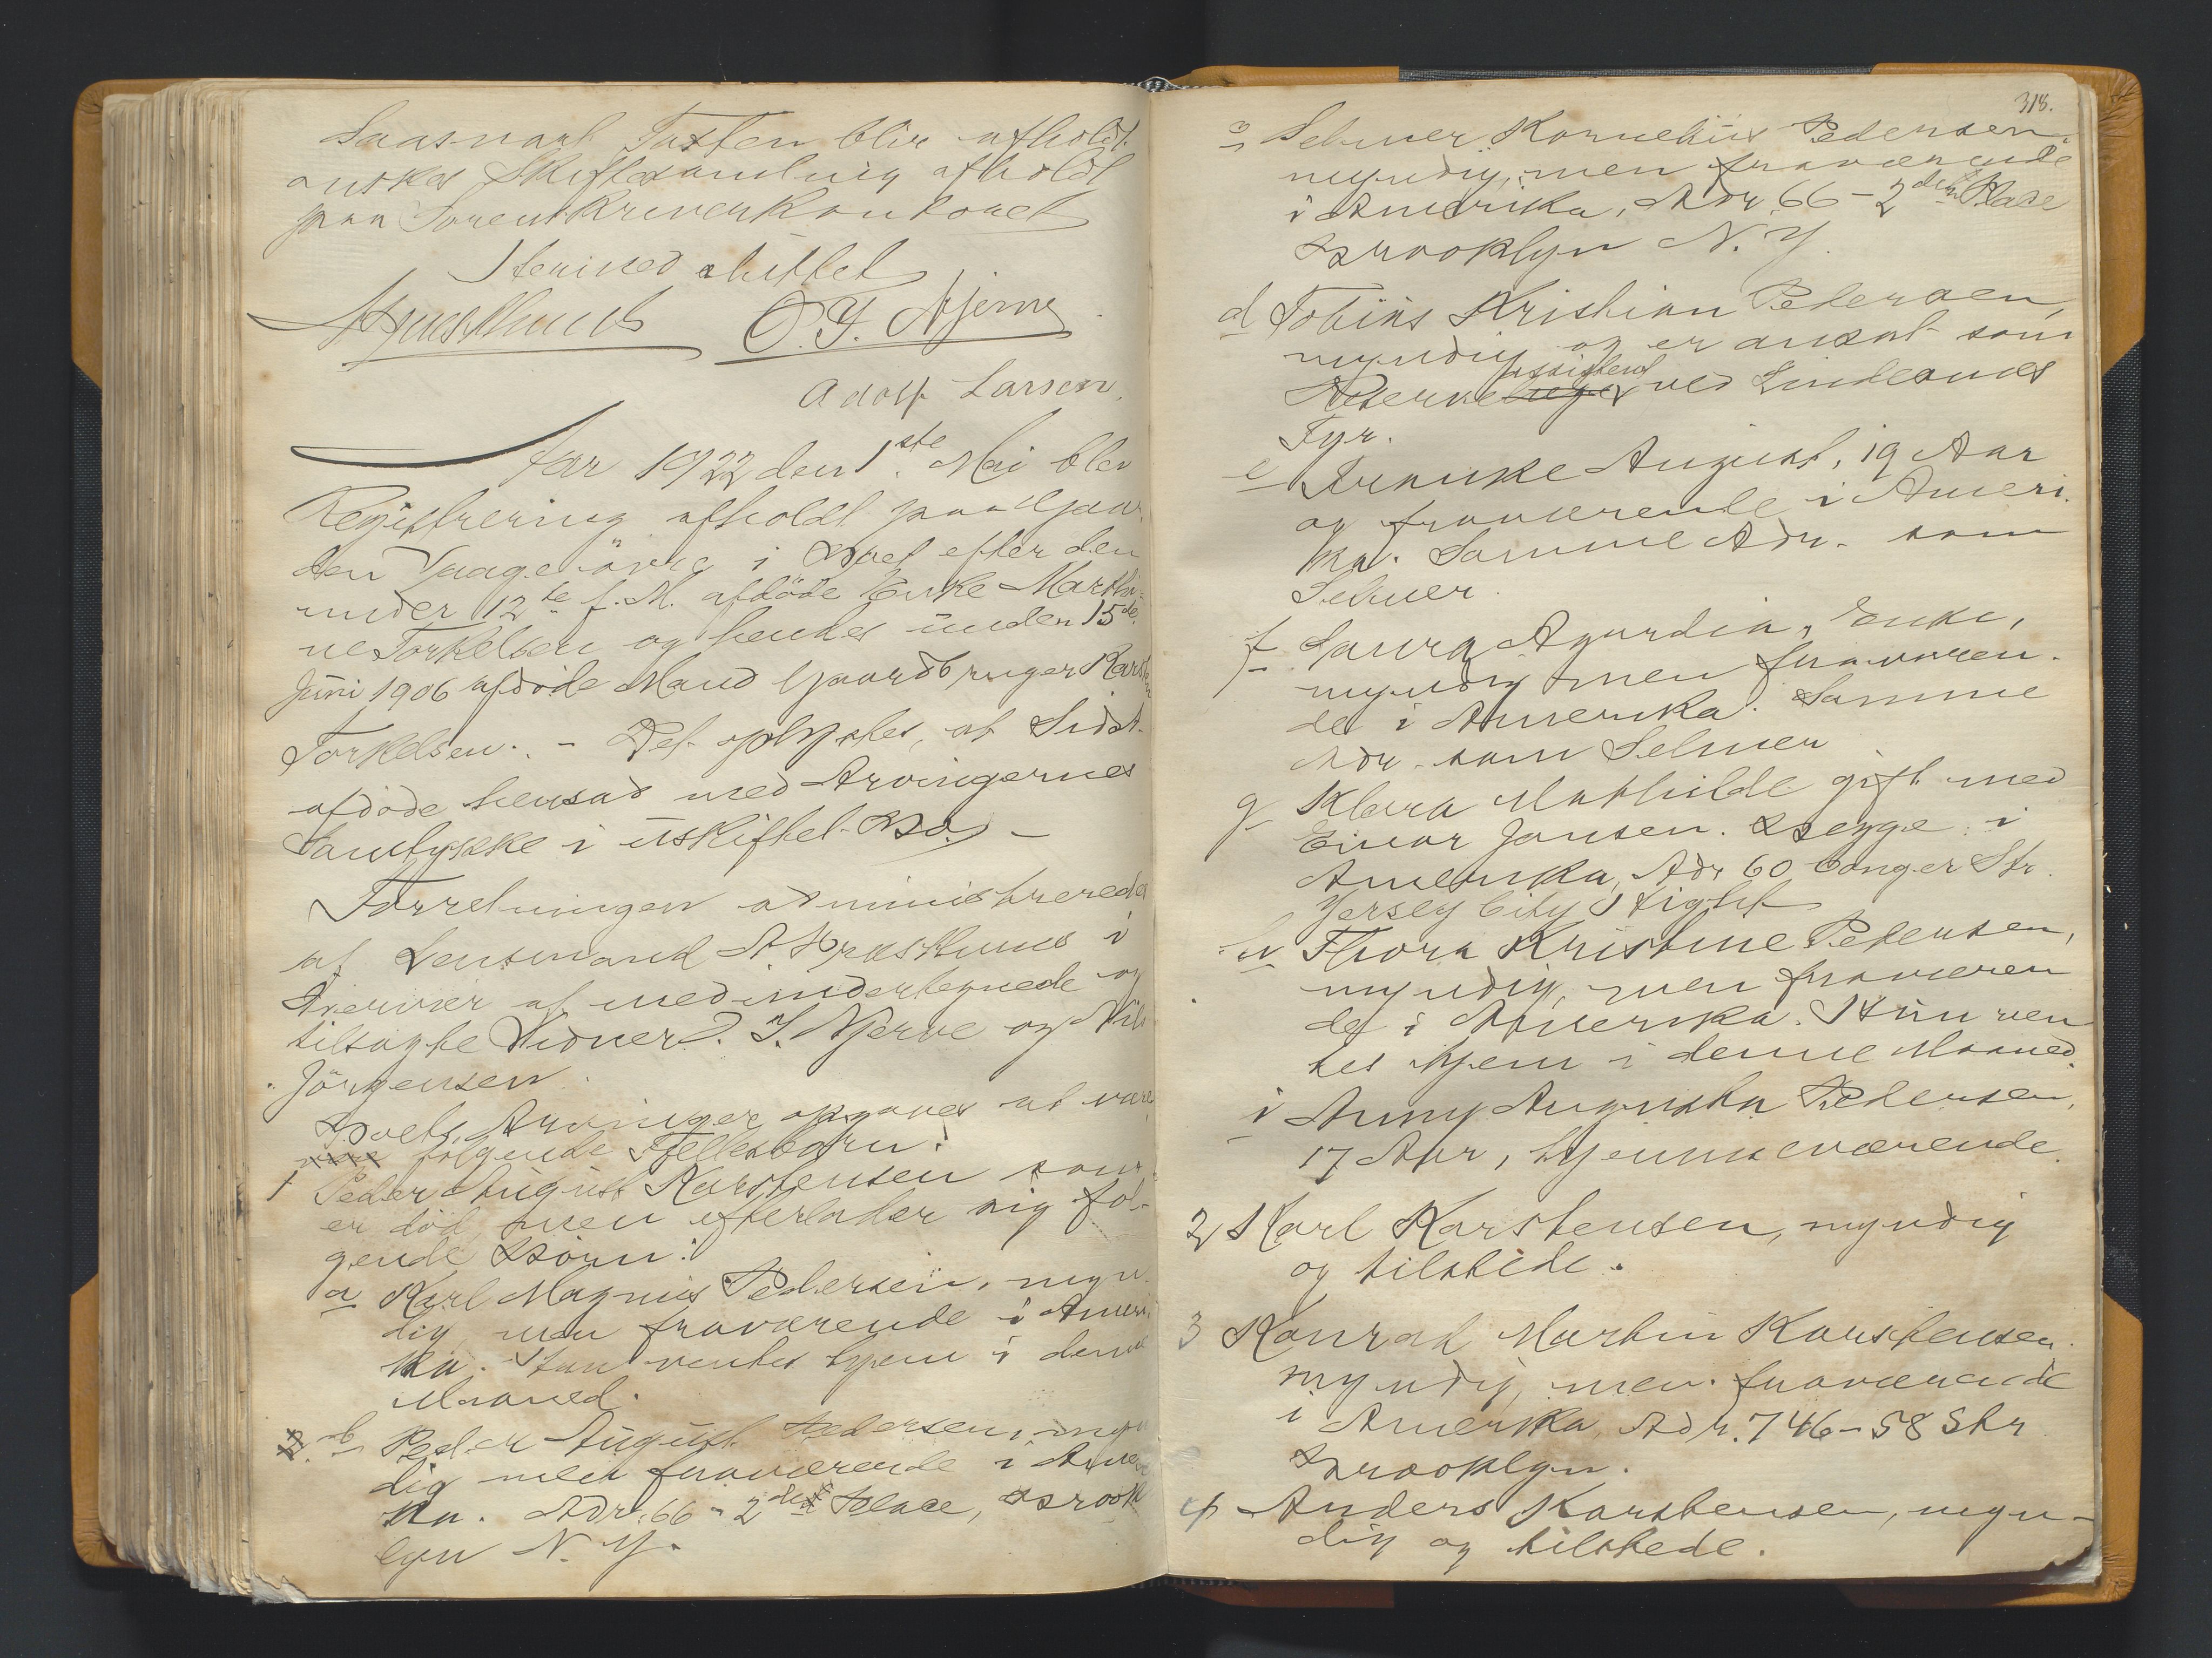 Saasnart Taxten blir afholdt
ønskes Skiftesamling afholdt
paa Sorenskriverkontoret
Hermed sluttet
O. J. Njerve
Adolf Larsen.
Aar 1922 den 1ste Mai blev
Registrering afholdt paa Gaar-
den Vaage övre i Boet efter den
under 12te f. M. afdöde Enke Marthi-
ne Torkelsen og hendes under 15de
Juni 1906 afdöde Mand Gaardbruger Karsten
Torkelsen. - Det oplystes, at Sidst-
afdöde hensad med Arvingernes
Samtykke i uskiftet Bo. -
Forretningen administreredes
af Lensmand i
af medundertegnede og
tilsagte Vidner O. J. Njerve og Nils
Jörgensen.
Boets Arvinger opgaves at være
være følgende Fællesbørn:
1 Peder August Karstensen som
er död, men efterlader sig föl-
gende Börn:
a Karl Magnus Pedersen, myn-
dig, men fraværende i Ameri-
ka. Han ventes hjem i denne
Maaned.
2. b Peder August Pedersen, myn
dig men fraværende i Ameri
ka. Adr. 66 - 2den Place, Brook
lyn N. Y.
318.
c Selmer Kornelius Pedersen,
myndig, men fraværende
i Amerika, Adr 66 - 2den Place
Brooklyn N. Y.
d Tobias Kristian Pedersen,
myndig og er ansat som
assistent
Reserve ved Lindesnes
Fyr.
e Franke August, 19 Aar
og fraværende i Ameri-
ka. Samme Adr. som
Selmer.
f Laura Agurdia, Enke,
myndig men fraværen-
de i Amerika. Samme
Adr. som Selmer
g Klara Mathilde gift med
Einar Jansen. Begge i
Amerika, Adr 60 Conger Str.
Jersey City Hight
h Thora Kristine Pedersen,
myndig, men fraværen
de i Amerika. Hun ven
tes hjem i denne Maaned.
i Anny Augusta Pedersen,
17 Aar, hjemmeværende.
2 Karl Karstensen, myndig
og tilstede.
3 Konrad Martin Karstensen.
myndig, men fraværende
i Amerika, Adr. 746 - 58 Str
Brooklyn.
4 Anders Karstensen, myn-
dig og tilstede.